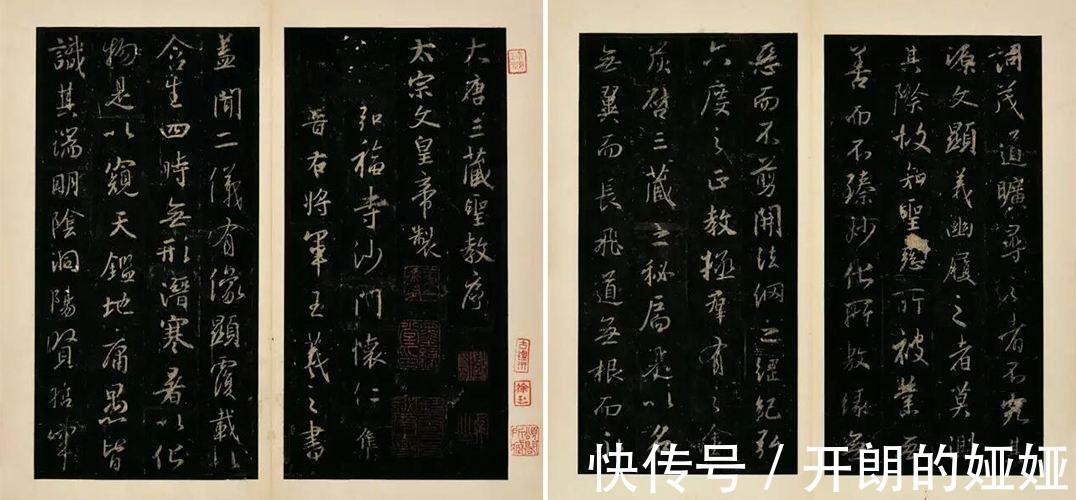 大唐三藏聖教序
太宗文皇帝製
弘福寺沙門懷仁集
晉右將軍王羲之書
蓋聞二儀有像顯覆載以
含生四時無形潛寒暑以化
物是以窺天鑑地庸愚皆
識其端明陰洞陽賢哲罕
詞茂道曠尋之者不究其
源文顯義幽履之者莫測
其際故知聖慈所被業無
善而不臻妙化所敷緣無
惡而不剪開法網之綱紀弘
六度之正教拯羣有之塗
炭啓三藏之秘扃是以名
無翼而長飛道無根而永
快传号 / 开朗的娅娅